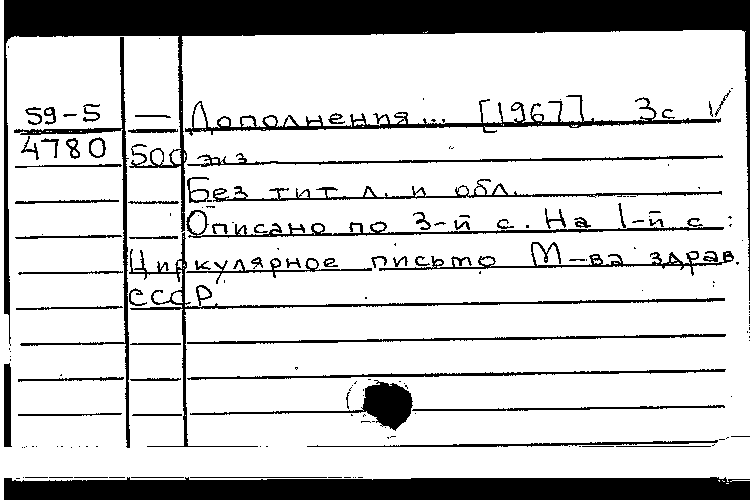 59-5 — Дополнения... [1967]. 3с. ✓
4780 500 экз.
Без тит л. и обл.
Описано по 3-й с. На 1-й с :
Циркулярное письмо М-ва здрав.
СССР.